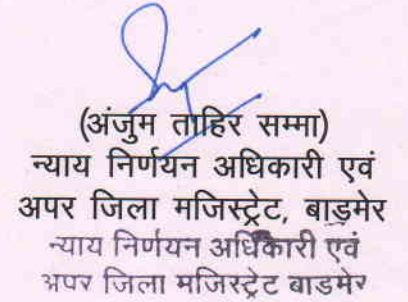 (अंजुम ताहिर सम्मा)
न्याय निर्णयन अधिकारी एवं
अपर जिला मजिस्ट्रेट, बाड़मेर
न्याय निर्णयन अधिकारी एवं
अपर जिला मजिस्ट्रेट बाडमेर